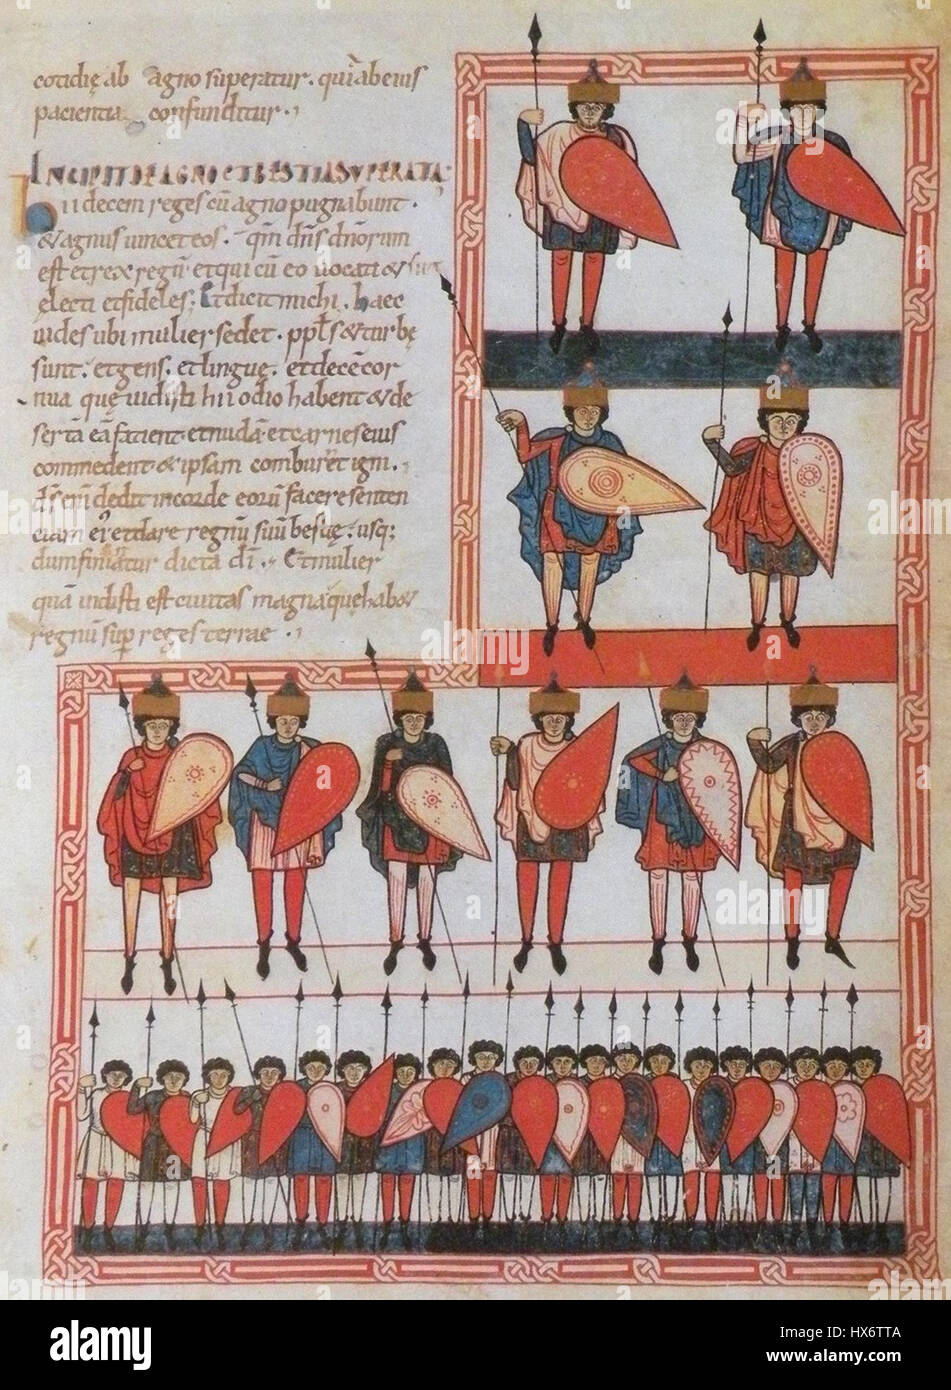 cotidię ab agno superatur · quia b eius
pacientia confunditur ·
INCIPIT DE AGNO ET BESTIA SUPERATA·
Hii decem reges cū agno pugnabunt ·
& agnus uincet eos · qm̄ dn̄s dn̄orum
est et rex regū · et qui cū eo uocati & sunt
ęlecti et fideles · Et dicit michi · haec
uides ubi mulier sedet · ppl̄s & turbę
sunt · et gens · et linguę · et decē cor
nua quę uidisti hii odio habent & de
sertā eā facient · et nudā · et carnes eius
commedent · & ipsam comburēt igni ·
dn̄s enī dedit in corde eorū facere senten
ciam ei et dare regnū suū bestię · usq;
dum finiatur dicta dī · Et mulier
quā uidisti est ciuitas magna quę hab&
regnū sup reges terrae ·
alamy
alamy
Image ID: HX6TTA
www.alamy.com